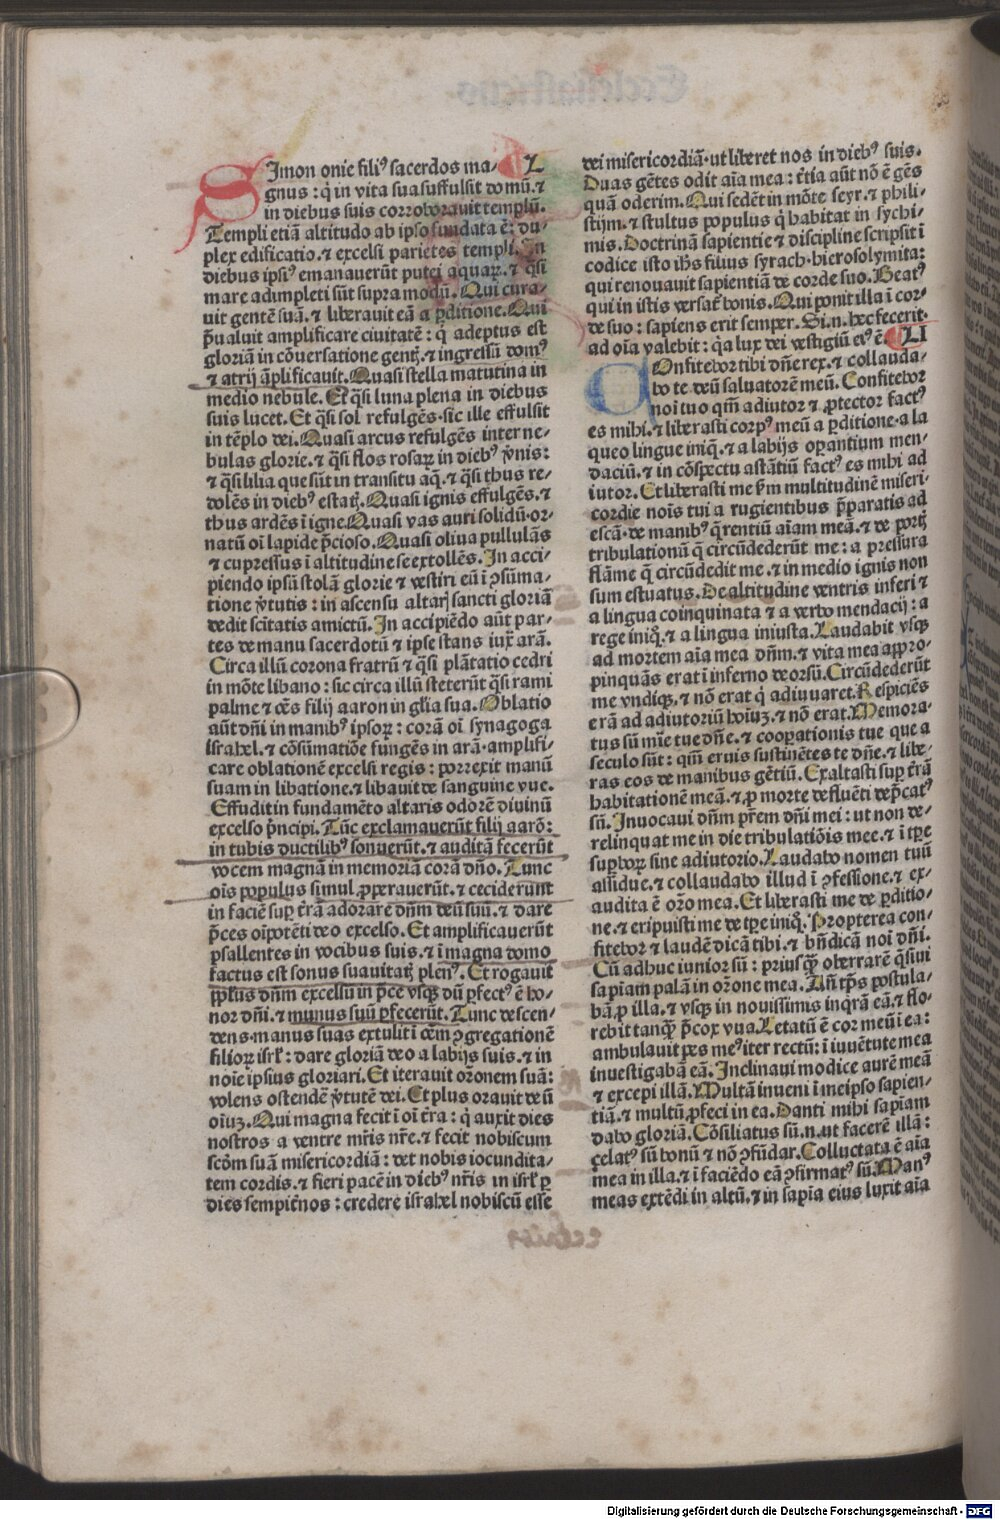 Simon onie fili⁹ sacerdos ma- L
gnus: q̇ in vita sua suffulsit domū. ⁊
in diebus suis corroboravit templū.
Templi etiā altitudo ab ipso fundata ē: du-
plex edificatio. ⁊ excelsi parietes templi. In
diebus ipsi⁹ emanauerūt putei aquaꝝ. ⁊ q̄si
mare adimpleti sūt supra modū. Qui cura-
uit gentē suā. ⁊ liberauit eā a ꝑditione. Qui
p̄ualuit amplificare ciuitatē: q̇ adeptus est
gloriā in cōuersatione gentꝭ. ⁊ ingressū dom⁹
⁊ atrij āplificauit. Quasi stella matutina in
medio nebule. Et q̄si luna plena in diebus
suis lucet. Et q̄si sol refulgēs. sic ille effulsit
in tēplo dei. Quasi arcus refulgēs inter ne-
bulas glorie. ⁊ q̄si flos rosaꝝ in dieb⁹ v̄nis:
⁊ q̄si lilia que sūt in transitu aq̄. ⁊ q̄si thus re-
dolēs in dieb⁹ estatꝭ. Quasi ignis effulgēs. ⁊
thus ardēs ī igne. Quasi vas auri solidū. or-
natū oī lapide p̄cioso. Quasi oliua pullulās
⁊ cupressus ī altitudine se extollēs. In acci-
piendo ipsū stolā glorie ⁊ vestiri eū ī ꝯsūma-
tione v̄tutis: in ascensu altarꝭ sancti gloriā
dedit scītatis amictū. In accipiēdo aūt par-
tes de manu sacerdotū ⁊ ipse stans iux̄ arā.
Circa illū corona fratrū ⁊ q̄si plātatio cedri
in mōte libano: sic circa illū steterūt q̄si rami
palme ⁊ oēs filij aaron in gl̄ia sua. Oblatio
aūt dn̄i in manib⁹ ipsoꝝ: corā oī synagoga
israhel. ⁊ cōsūmatiōe fungēs in arā. amplifi-
care oblationē excelsi regis: porrexit manū
suam in libatione. ⁊ libauit de sanguine vue.
Effudit in fundamēto altaris odorē diuinū
excelso p̄ncipi. Tūc exclamauerūt filij aarō:
in tubis ductilib⁹ sonuerūt. ⁊ auditā fecerūt
vocem magnā in memoriā corā dn̄o. Tunc
oīs populus simul ꝓperauerūt. ⁊ ceciderunt
in faciē suꝑ t̄rā adorare dn̄m deū suū. ⁊ dare
p̄ces oīpotēti deo excelso. Et amplificauerūt
psallentes in vocibus suis. ⁊ ī magna domo
factus est sonus suauitatꝭ plen⁹. Et rogauit
pp̄lus dn̄m excelsū in p̄ce vsqꝫ dū ꝑfect⁹ ē ho-
nor dn̄i. ⁊ munus suū ꝑfecerūt. Tunc descen-
dens. manus suas extulit ī oēm ꝯgregationē
filioꝝ isrl̄: dare gloriā deo a labijs suis. ⁊ in
noīe ipsius gloriari. Et iterauit or̄onem suā:
volens ostendē v̄tutē dei. Et plus orauit deū
oīuꝫ. Qui magna fecit ī oī t̄ra: q̇ auxit dies
nostros a ventre mr̄is nr̄e. ⁊ fecit nobiscum
scd̄m suā misericordiā: det nobis iocundita-
tem cordis. ⁊ fieri pacē in dieb⁹ nr̄is in isrl̄ ꝑ
dies sempiēnos: credere israhel nobiscū esse
dei misericordiā. ut liberet nos in dieb⁹ suis.
Duas gētes odit aīa mea: t̄tia aūt nō ē gēs
quā oderim. Qui sedēt in mōte seyr. ⁊ phili-
stijm. ⁊ stultus populus q̇ habitat in sychi-
mis. Doctrinā sapientie ⁊ discipline scripsit ī
codice isto ih̄s filius syrach. hierosolymita:
qui renouauit sapientiā de corde suo. Beat⁹
qui in istis versat̄ bonis. Qui ponit illa ī cor-
de suo: sapiens erit semper. Si. n. hec fecerit.
ad oīa valebit: q̇a lux dei vestigiū ei⁹ ē. LI
Confitebor tibi dn̄e rex. ⁊ collauda-
bo te deū saluatorē meū. Confitebor
noī tuo qm̄ adiutor ⁊ ꝓtector fact⁹
es mihi. ⁊ liberasti corp⁹ meū a ꝑditione. a la
queo lingue iniq̄. ⁊ a labijs oꝑantium men-
daciū. ⁊ in cōspectu astātiū fact⁹ es mihi ad
iutor. Et liberasti me s̄m multitudinē miseri-
cordie noīs tui a rugientibus p̄paratis ad
escā. de manib⁹ q̄rentiū aīam meā. ⁊ de portꝭ
tribulationū q̄ circūdederūt me: a pressura
flāme q̄ circūdedit me. ⁊ in medio ignis non
sum estuatus. De altitudine ventris inferi ⁊
a lingua coinquinata ⁊ a verbo mendacij: a
rege iniq̄. ⁊ a lingua iniusta. Laudabit vsqꝫ
ad mortem aīa mea dn̄m. ⁊ vita mea appro-
pinquās erat ī inferno deorsū. Circūdederūt
me vndiqꝫ. ⁊ nō erat q̇ adiuuaret. Respiciēs
erā ad adiutoriū hoīuꝫ. ⁊ nō erat. Memora-
tus sū mīe tue dn̄e. ⁊ cooꝑationis tue que a
seculo sūt: qm̄ eruis sustinētes te dn̄e. ⁊ libe-
ras eos de manibus gētiū. Exaltasti suꝑ t̄rā
habitationē meā. ⁊ ꝓ morte defluēti dep̄cat⁹
sū. Inuocaui dn̄m pr̄em dn̄i mei: ut non de-
relinquat me in die tribulatiōis mee. ⁊ ī tp̄e
suꝑboꝝ sine adiutorio. Laudabo nomen tuū
assidue. ⁊ collaudabo illud ī ꝯfessione. ⁊ ex-
audita ē or̄o mea. Et liberasti me de ꝑditio-
ne. ⁊ eripuisti me de tp̄e iniq̄. Propterea con-
fitebor ⁊ laudē dicā tibi. ⁊ bn̄dicā noī dn̄i.
Cū adhuc iunior sū: priusq̄ꝫ oberrarē q̄siui
sapīam palā in or̄one mea. An̄ tp̄s postula-
bā ꝓ illa. ⁊ vsqꝫ in nouissimis inq̇rā eā. ⁊ flo-
rebit tanqꝫ p̄cox vua. Letatū ē cor meū ī ea:
ambulauit pes me⁹ iter rectū: ī iuuētute mea
inuestigabā eā. Inclinaui modice aurē meā
⁊ excepi illā. Multā inueni ī meipso sapien-
tiā. ⁊ multū ꝓfeci in ea. Danti mihi sapīam
dabo gloriā. Cōsiliatus sū. n. ut facerē illā:
çelat⁹ sū bonū ⁊ nō ꝯfūdar. Colluctata ē aīa
mea in illa. ⁊ ī faciēdo eā ꝯfirmat⁹ sū. Man⁹
meas extēdi in altū. ⁊ in sapīa eius luxit aīa
Digitalisierung gefördert durch die Deutsche Forschungsgemeinschaft - DFG